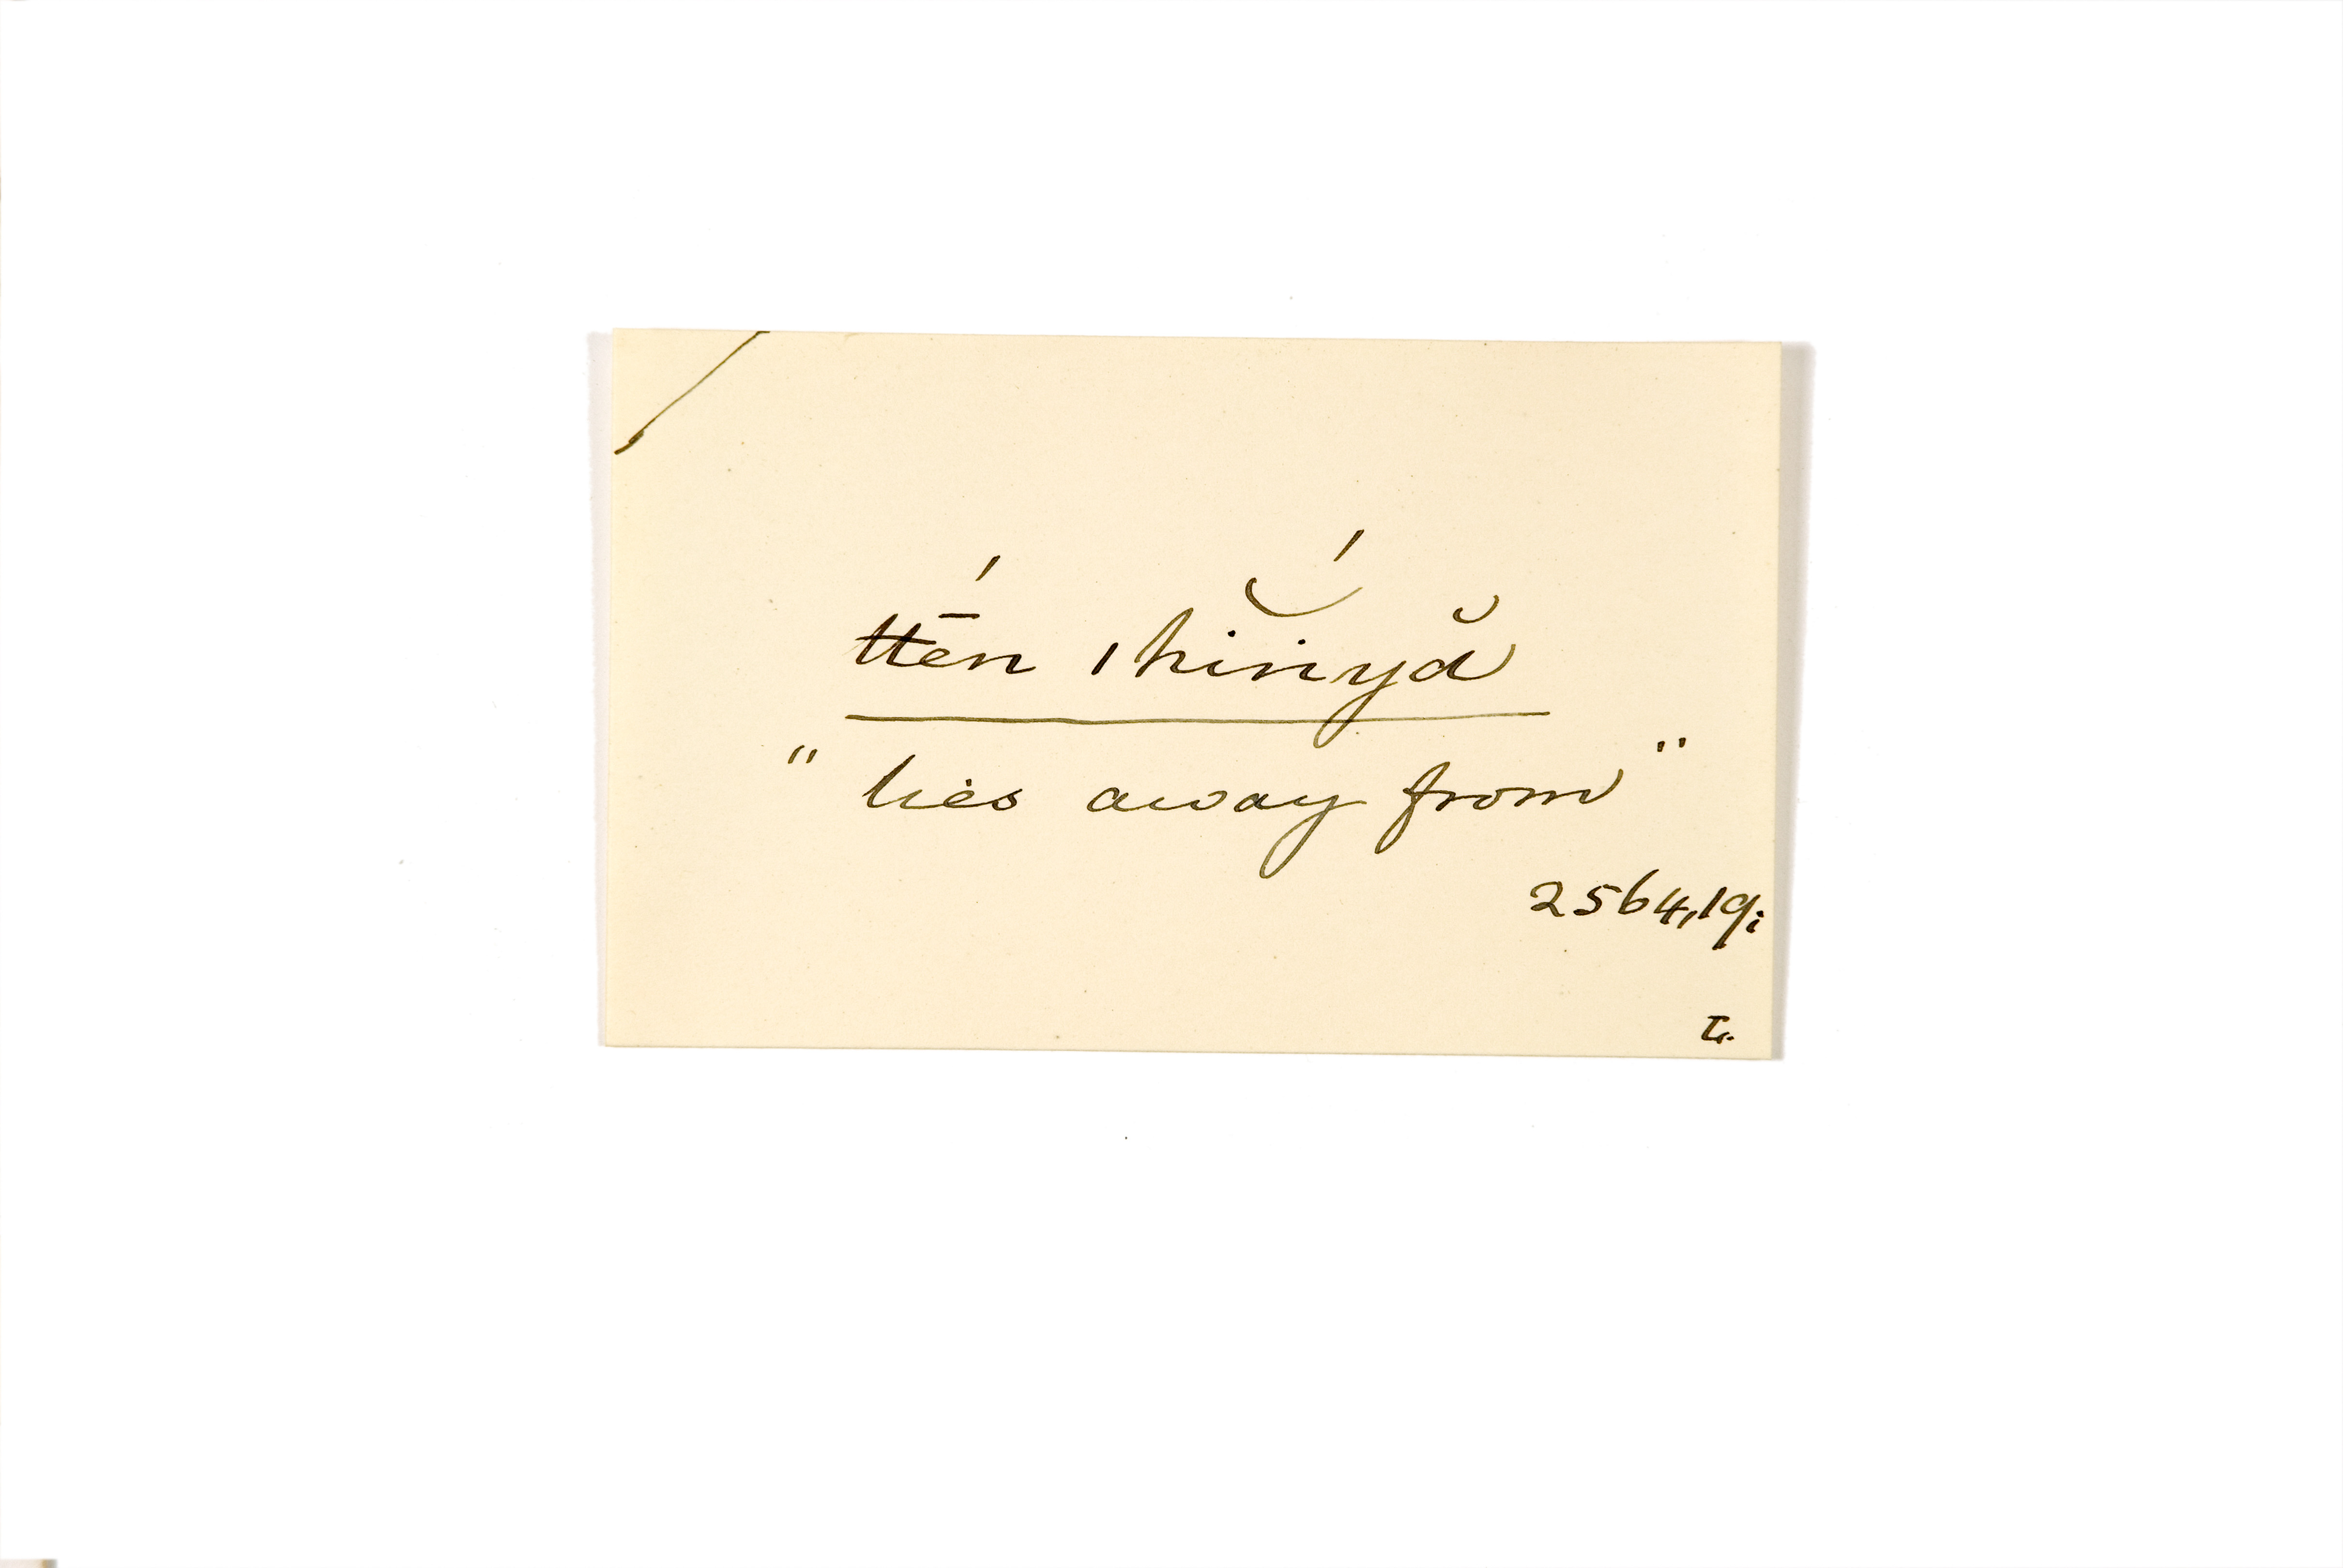 ttḗn ıhĭ́nyă
"lies away from"
2564,19;